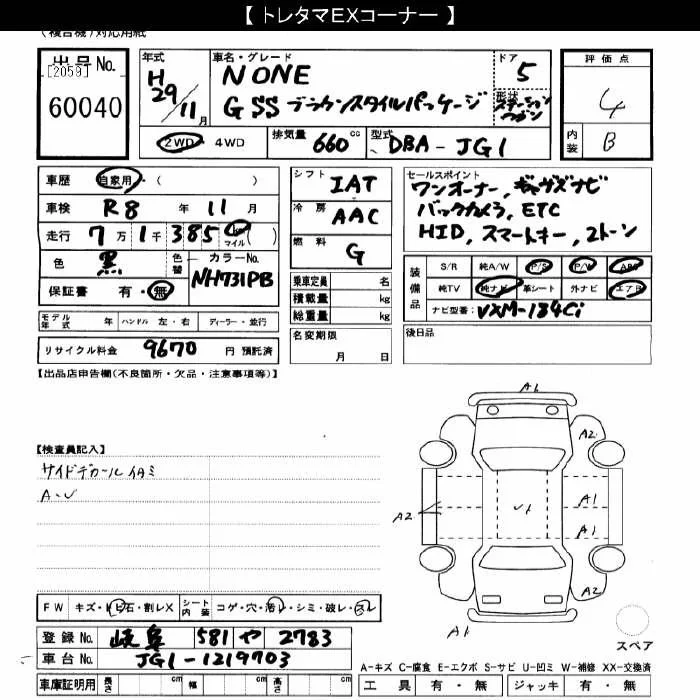 【 トレタマEXコーナー 】
(複合機)対応用紙
出品No.
[2059]
60040
年式
H
29/11月
車名・グレード
N ONE
G SS ブラウンスタイルパッケージ
ドア
5
形状
ステーション
ワゴン
評価点
4
内装
B
2WD ・ 4WD
排気量 660 cc
型式 DBA - JG1
車歴 自家用・( )
車検 R8 年 11 月
走行 7万 1千 385 km マイル ( )
色 黒 色替 ・ カラーNo. NH731PB
保証書 有・無
シフト IAT
冷房 AAC
燃料 G
乗車定員 名
積載量 kg
総重量 kg
名変期限
月 日
セールスポイント
ワンオーナー, ギャザズナビ
バックカメラ, ETC
HID, スマートキー, 2トーン
装備品
S/R 純A/W P/S P/W ABS
純TV 純ナビ 革シート 外ナビ エアB
ナビ型番: VXM-184Ci
後日品
モデル年式 年 ハンドル 左・右 ディーラー・並行
リサイクル料金 9670 円 預託済
【出品店申告欄(不良箇所・欠品・注意事項等)】
【検査員記入】
サイドデカール イタミ
A・U
A1
A2
A2
A1
A1
A2
A1
FW キズ・トビ石・割レX シート内装 コゲ・穴・汚レ・シミ・破レ・スレ
登録No. 岐阜 581 や 2783
車台No. JG1-1219703
車庫証明用 長さ cm 幅 cm 高さ cm
スペア
A-キズ C-腐食 E-エクボ S-サビ U-凹ミ W-補修 XX-交換済
工具 有・無 ジャッキ 有・無